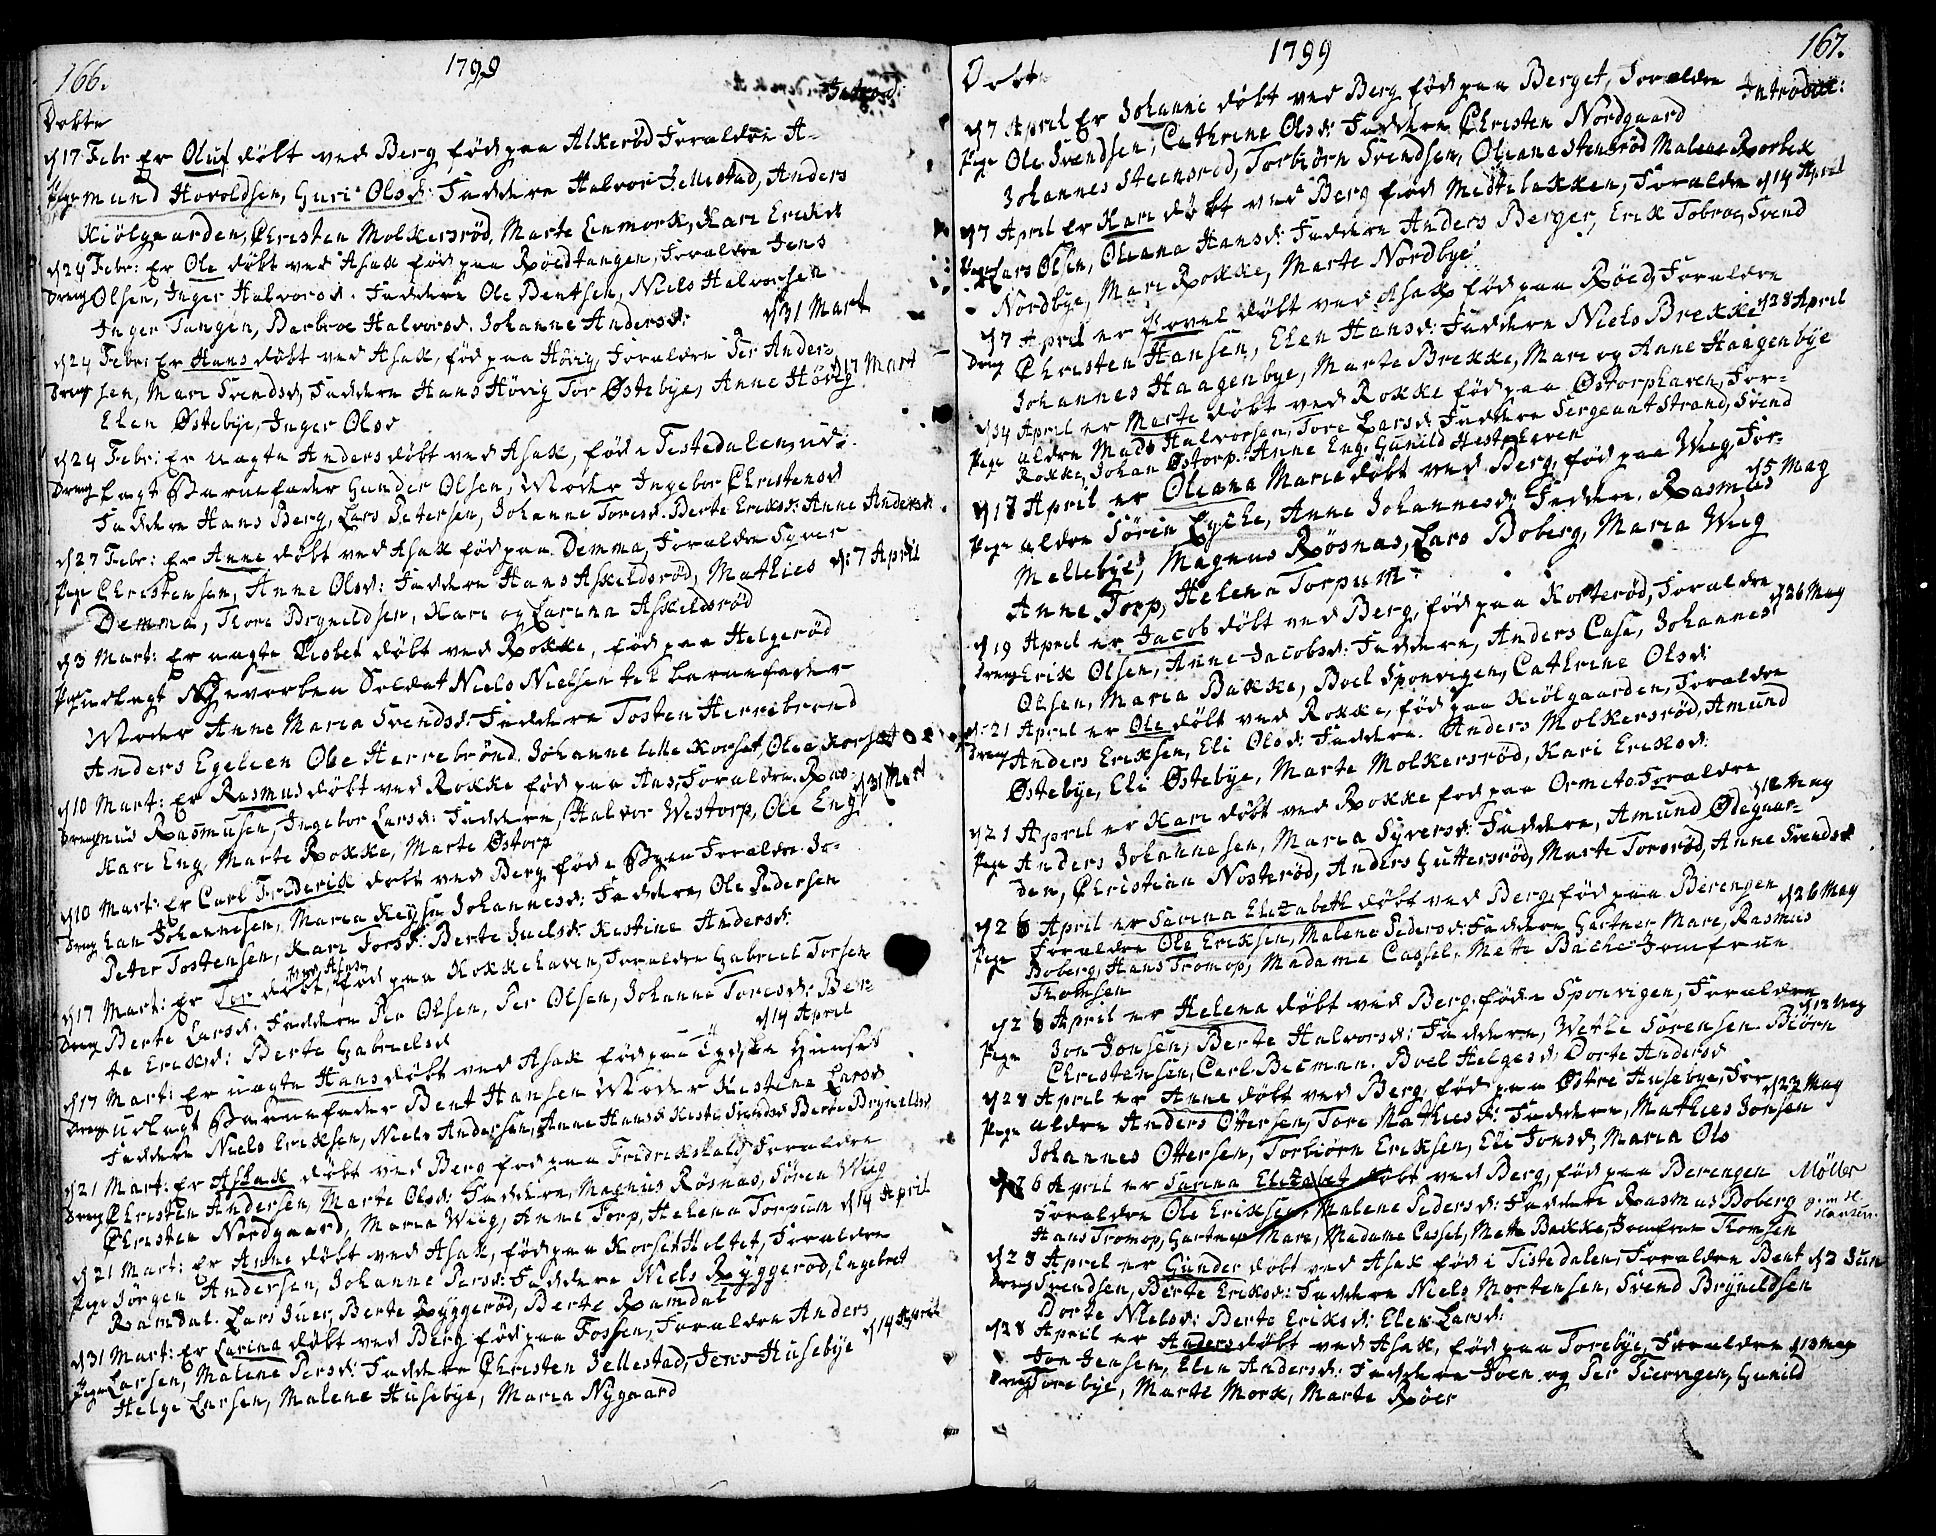 166.
1799
Introd:
Døbte
d 17 Febr Er Oluf døbt ved Berg, fød paa Alkerød Forældre A-
Pige mund Haroldsen, Guri Olsd: Faddere Halvor Jellestad, Anders
Kiölgaarden, Christen Molkersrød, Marte Lenmork, Kari Eriksd
d 24 Febr: Er Ole døbt ved Asak fød paa Røedtangen, Forældre Jens
Dreng Olsen, Inger Halvorsd. Faddere Ole Bentsen, Niels Halvorsen
Inger Tangen, Barbroe Halvorsd. Johanne Andersd: d 31 Mart
d 24 Febr: Er Hans døbt ved Asak, fød paa Hövig, Forældre Per Ander-
Dreng sen, Mari Svendsd, Faddere Hans Hövig Tor Østebye, Anne Hövig d 17 Mart
Elen Østebye, Inger Olsd
d 24 Febr: Er uægte Anders døbt ved Asak, fød i Testedalen, ud-
Dreng lagt Barnefader Gunder Olsen, Moder Ingebor Christensd
Faddere Hans Berg, Lars Petersen, Johanne Toresd. Berte Eriksd: Anne Andersd
d 27 Febr: Er Anne døbt ved Asak fød paa Demma, Forældre Syver
Pige Christensen, Anne Olsd: Faddere Hans Askeldsrød, Mathies d: 7 April
Demma, Thore Brynildsen, Kari og Carina Askildsrød
d 3 Mart: Er uægte Lisbet døbt ved Rokke, fød paa Helgerød
Pige udlagt Gevorben Soldat Niels Nielsen til barnefader
Moder Anne Maria Svendsd: Faddere Tosten Herrebrønd
Anders Egelien Ole Herrebrønd. Johanne lille Korset, Olea Korset
d 10 Mart: Er Rasmus døbt ved Rokke fød paa Aas, Forældre. Ras- d 31 Mart
Dreng mus Rasmusen, Ingebor Larsd: Faddere Halvor Westorp, Ole Eng
Kari Eng, Marte Rokke, Marte Østorp
d 10 Mart: Er Carl Friderik døbt ved Berg fød i Byen Forældre Jo-
Dreng han Johannesen, Maria Keysa Johannesd: Faddere, Ole Pedersen
Peter Tostensen, Kari Torsd: Berte Juelsd: Kestine Andersd:
d 17 Mart: Er Tor døbt, ved Asak fød paa Kokkehaven, Forældre Gabriel Torsen
Dreng Berte Larsd. Faddere Per Olsen, Per Olsen, Johanne Toresd: Ber-
te Eriksd: Berte Gabrielsd d 14 April
d 17 Mart: Er uægte Hans døbt ved Asak fød paa Hunset
Dreng udlagt Barnefader Bent Hansen Moder Kestine Larsd
Faddere Niels Eriksen, Niels Andersen, Anne Hansd Kesti Svendsd Berte Brynildsd
d 21 Mart: Er Aslak døbt ved Berg fød paa Fridrikshald, Forældre
Dreng Christen Andersen, Marte Olsd: Faddere, Magnus Røsnæs, Søren Wiig
Christen Nordgaard, Maria Wiig, Anne Torp, Helena Torpum d 14 April
d 21 Mart: Er Anne døbt ved Asak, fød paa Korset Holtet, Forældre
Pige Jørgen Andersen, Johanne Persd: Faddere Niels Ryggerød, Engebret
Ramdal. Lars Juer, Berte Ryggerød, Berte Ramdal
d 31 Mart: Er Carina døbt ved Berg fød paa Fossen, Forældre Anders d 14 April
Pige Larsen, Malene Persd: Faddere Christen Jellestad, Jens Husebye
Helge Larsen, Malene Husebye, Maria Nygaard
1799
167.
Døbte
Introduc:
d 7 April Er Johanne døbt ved Berg fød paa Berget, Forældre
Pige Ole Svendsen, Cathrine Olsd: Faddere Christen Nordgaard
Johannes Steensrød, Torbiørn Svendsen, Oleana Stensrød Malene Rorbek
d 7 April Er Kari døbt ved Berg fød Medtelokken, Forældre d 14 April
Pige Lars Olsen, Oleana Hansd: Faddere Anders Berger, Erik Tobroe, Svend
Nordbye, Mari Rokke, Marte Nordbye
d 7 April er døbt ved Asak fød paa Røed, Forældre
Dreng Christen Hansen, Elen Hansd: Faddere Niels Brekke d 28 April
Johannes Haagenbye, Marte Brekke, Mari og Anne Haagenbye
d 14 April er Marte døbt ved Rokke fød paa Østorphaven, For-
Pige ældre Mads Halvorsen, Tore Larsd: Faddere Sergeant Strand, Svend
Rokke, Johan Østorp. Anne Eng, Gunild Hestehaven
d 18 April er Oleana Maria døbt ved Berg, fød paa Weg For- d 5 May
Pige ældre Søren Lyche, Anne Johannesd: Faddere. Rasmus
Mellebye, Magnus Røsnæs, Lars Boberg, Maria Wiig
Anne Torp, Helena Torpum
d 19 April er Jacob døbt ved Berg, fød paa Korterød, Forældre d 26 May
Dreng Erik Olsen, Anne Jacobsd: Faddere, Anders Case, Johannes
Olsen, Maria Bakke, Boel Sponvigen, Cathrine Olsd:
d: 21 April er Ole døbt ved Rokke, fød paa Kiölgaarden, Forældre
Dreng Anders Eriksen, Eli Olsd: Faddere. Anders Molkersrød, Amund
Østebye, Eli Østebye, Marte Molkersrød, Kari Eriksd:
d 21 April er Kari døbt ved Rokke fød paa Ormeto Forældre d 12 May
Pige Anders Johannesen, Maria Syversd: Faddere, Amund Ødegaar-
den, Christian Nosterød, Anders Guttersrød, Marte Torsrød, Anne Svendsd
d 26 April er Sarina Elizabeth døbt ved Berg, fød paa Berengen d 26 May
Pige Forældre Ole Eriksen, Malene Pedersd: Faddere Gartner Mare, Rasmus
Boberg, Hans Tromop, Madame Cassel, Mette Bache Jomfrue
Thomsen
d 26 April er Helena døbt ved Berg, fød i Sponvigen, Forældre d 12 May
Pige Jon Jonsen, Berte Halvorsd: Faddere, Wetle Sørensen. Biörn
Christensen, Carl Beeman. Boel Helgesd, Dorte Andersd
d 28 April er Anne døbt ved Berg, fød paa Østre Husebye, For- d 22 May
Pige ældre Anders Ottersen, Tore Mathiesd: Faddere, Mathies Jonsen
Johannes Ottersen, Torbiørn Eriksen, Eli Jonsd, Maria Ols
d 26 April er Sarina Elizabet døbt ved Berg, fød paa Berengen Møller
Forældre Ole Eriksen, Malene Pedersd: Faddere Rasmus Boberg
Hans Tromop, Gartner Mare, Madame Cassel, Mette Bakke, Jomfrue Thomsen
d 28 April er Gunder døbt ved Asak fød i Tistedalen, Forældre Bent d 2 Jun
Dreng Svendsen, Berte Eriksd: Faddere Niels Mortensen, Svend Brynildsen
Dorte Nielsd: Berte Eriksd: Elen Larsd:
d 28 April er Anders døbt ved Asak, fød paa Torebye, Forældre d 13 May
Jon Jensen, Elen Andersd: Faddere Joen og Per Tiervigen, Gunild
Dreng Torebye, Marte Mork, Marte Røer